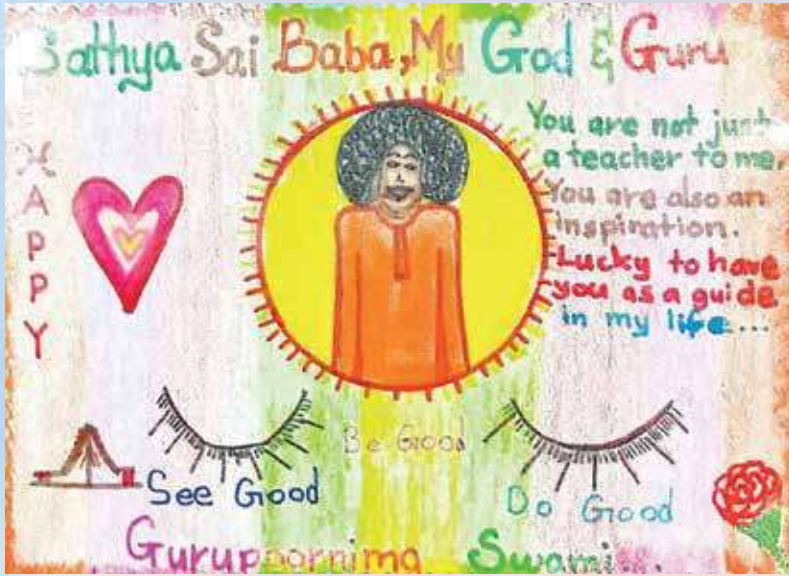 Sathya Sai Baba, My God & Guru
HAPPY
You are not just
a teacher to me.
You are also an
inspiration.
Lucky to have
you as a guide
in my life...
Be Good
See Good
Do Good
Gurupoornima Swami...